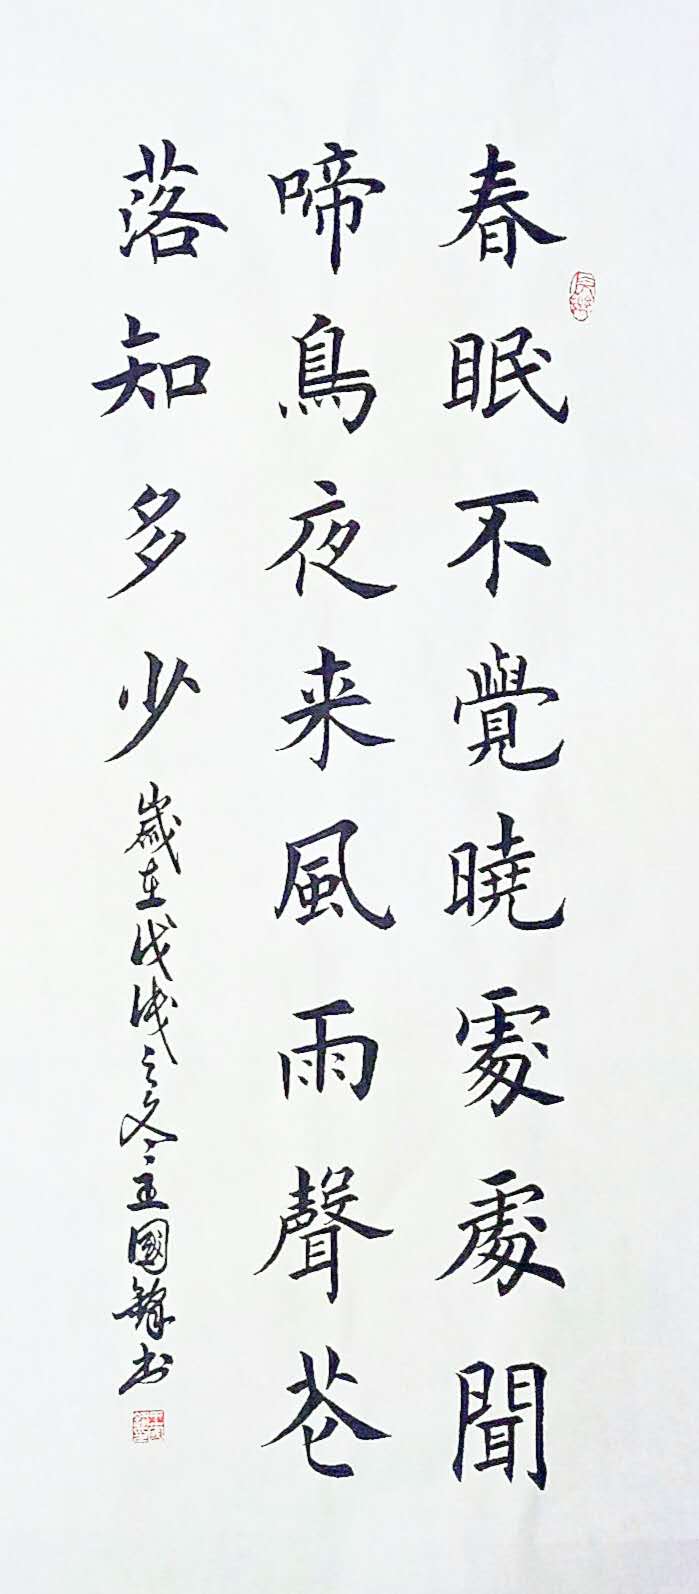 春眠不覺曉處處聞
啼鳥夜来風雨聲花
落知多少
歲在戊戌之冬王國鋒书